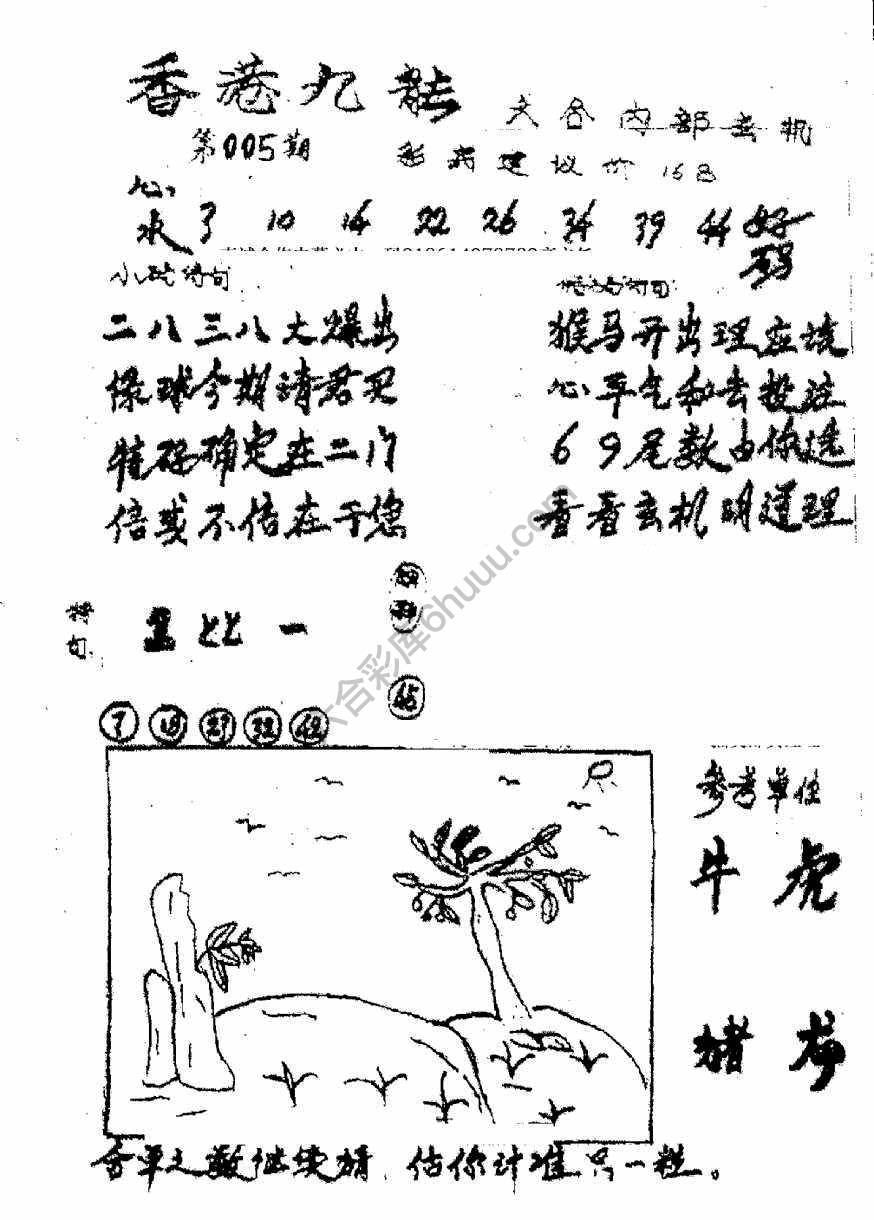 香港九龍
六合内部玄机
第005期
彩 建议价168
心水 3 10 14 22 26 34 39 44 好码
诗句
二八三八大爆出
绿球今期请君买
特码确定在二门
信或不信在于您
猴马开出理应该
心平气和去投注
69尾数由你选
看看玄机明道理
特句: 一
45
7 18 29 32 42
六合彩库6huuu.com
参考单位
牛 虎
猪 龙
合单之数继续猜,估你计准只一粒。